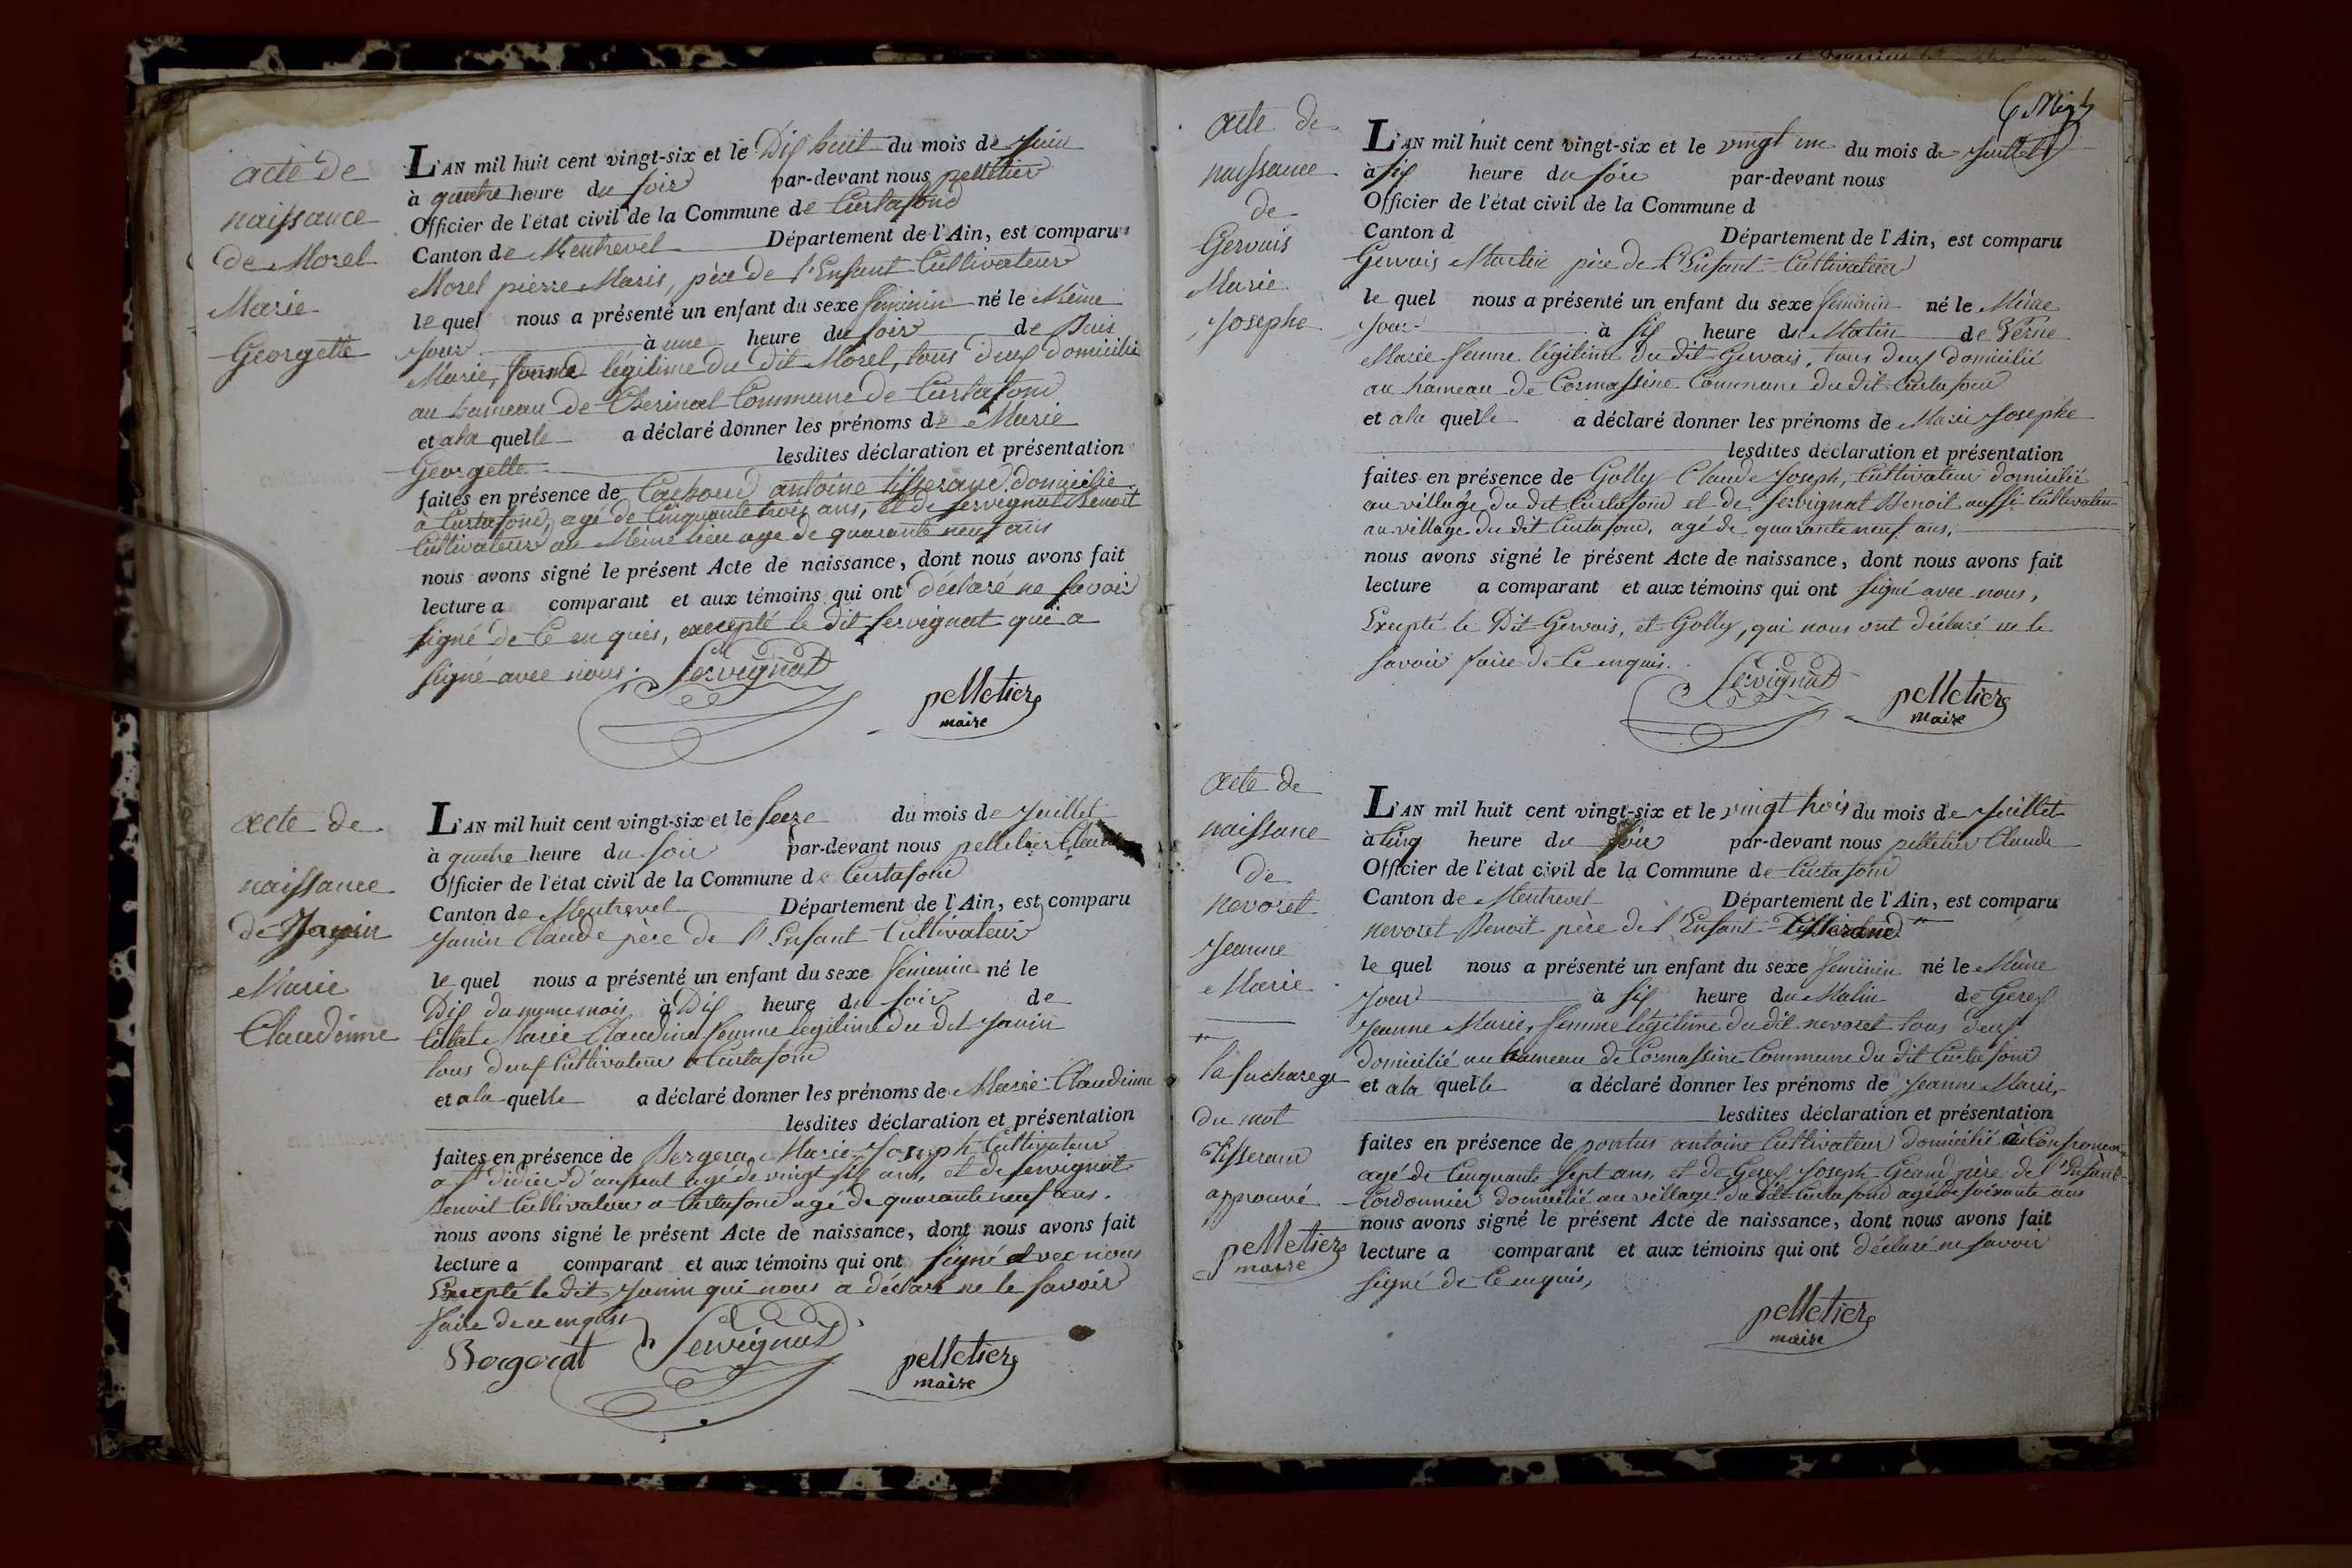 acte de
naissance
de Morel
Marie
Georgette
L'AN mil huit cent vingt-six et le Dix huit du mois de Juin
à quatre heure du soir par-devant nous pelletier
Officier de l'état civil de la Commune de Curtafond
Canton de Montrevel Département de l'Ain, est comparu
Morel pierre Marie, père de l'Enfant Cultivateur
le quel nous a présenté un enfant du sexe feminin né le Même
Jour à une heure du soir de Bais
Marie, femme légitime du dit Morel, tous deux domicilié
au hameau de Cherinal Commune de Curtafond
et a la quelle a déclaré donner les prénoms de Marie
Georgette lesdites déclaration et présentation
faites en présence de antoine tisserand domicilié
a Curtafond, agé de Cinquante trois ans, et de servignat Benoit
Cultivateur au Même lieu agé de quarante neuf ans
nous avons signé le présent Acte de naissance, dont nous avons fait
lecture a comparant et aux témoins qui ont déclaré ne savoir
signé de Ce enquis, excepté le dit servignat qui a
signé avec nous. Servignat
pelletier
maire
acte de
naissance
de Janin
Marie
Claudinne
L'AN mil huit cent vingt-six et le seize du mois de Juillet
à quatre heure du soir par-devant nous pelletier Claude
Officier de l'état civil de la Commune de Curtafond
Canton de Montrevel Département de l'Ain, est comparu
Janin Claude père de l'Enfant Cultivateur
le quel nous a présenté un enfant du sexe feminin né le
Dix du meme mois à Dix heure du soir de
Marie Claudine femme legitime du dit Janin
tous deux Cultivateur a Curtafond
et a la quelle a déclaré donner les prénoms de Marie Claudinne
lesdites déclaration et présentation
faites en présence de Bergera Marie Joseph Cultivateur
a St didier d'aussiat agé de vingt six ans, et de servignat
Benoit Cultivateur a Curtafond agé de quarante neuf ans.
nous avons signé le présent Acte de naissance, dont nous avons fait
lecture a comparant et aux témoins qui ont signé avec nous
Excepté le dit Janin qui nous a déclaré ne le savoir
faire de ce enquis
Borgorat Servignat pelletier
maire
acte de
naissance
de
Gervais
Marie
Josephe
L'AN mil huit cent vingt-six et le vingt un du mois de Juillet
à six heure du soir par-devant nous
Officier de l'état civil de la Commune d
Canton d Département de l'Ain, est comparu
Gervais Martin père de l'Enfant Cultivateur
le quel nous a présenté un enfant du sexe feminin né le Même
Jour à six heure du Matin de Perne
Marie femme légitime du dit Gervais, tous deux domicilié
au hameau de Cormassine Commune du dit Curtafond
et a la quelle a déclaré donner les prénoms de Marie Josephe
lesdites déclaration et présentation
faites en présence de Golly Claude Joseph, Cultivateur domicilié
au village du dit Curtafond et de servignat Benoit aussi Cultivateur
au village du dit Curtafond, agé de quarante neuf ans,
nous avons signé le présent Acte de naissance, dont nous avons fait
lecture a comparant et aux témoins qui ont signé avec nous,
Excepté le Dit Gervais, et Golly, qui nous ont déclaré ne le
savoir faire de Ce enquis.
Servignat pelletier
maire
acte de
naissance
de
nevoret
Jeanne
Marie
la sucharege
du mot
Tisserand
approuvé
pelletier
maire
L'AN mil huit cent vingt-six et le vingt trois du mois de Juillet
à Cinq heure du soir par-devant nous pelletier Claude
Officier de l'état civil de la Commune de Curtafond
Canton de Montrevel Département de l'Ain, est comparu
nevoret Benoit père de l'Enfant Tisserand
le quel nous a présenté un enfant du sexe feminin né le Même
Jour à six heure du Matin de Gerex
Jeanne Marie, femme légitime du dit nevoret tous deux
domicilié au hameau de Cormassine Commune du dit Curtafond
et a la quelle a déclaré donner les prénoms de Jeanne Marie,
lesdites déclaration et présentation
faites en présence de pontus antoine Cultivateur domicilié à Confrancon
agé de Cinquante sept ans, et de Gerex Joseph Grand père de l'Enfant
Cordonnier domicilié au village du dit Curtafond agé de soixante ans
nous avons signé le présent Acte de naissance, dont nous avons fait
lecture a comparant et aux témoins qui ont déclaré ne savoir
signé de Ce enquis,
pelletier
maire